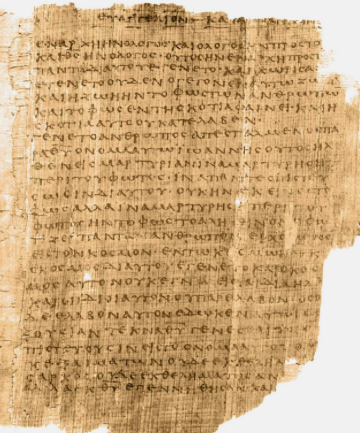 ΕΥΑΓΓΕΛΙΟΝ ΚΑΤΑ
ΕΝΑΡΧΗΗΝΟΛΟΓΟΣΚΑΙΟΛΟΓΟΣΗΝΠΡΟΣΤΟ
ΚΑΙΘΣΗΝΟΛΟΓΟΣ·ΟΥΤΟΣΗΝΕΝΑΡΧΗΠΡΟΣΤ
ΠΑΝΤΑΔΙΑΥΤΟΥΕΓΕΝΕΤΟ·ΚΑΙΧΩΡΙΣΑ
ΕΓΕΝΕΤΟΟΥΔΕΝΟΓΕΓΟΝΕΝΑΥΤΩΖΩ
ΚΑΙΗΖΩΗΗΝΤΟΦΩΣΤΩΝΑΝΘΡΩΠΩ
ΚΑΙΤΟΦΩΣΕΝΤΗΣΚΟΤΙΑΦΑΙΝΕΙ·ΚΑΙΗ
ΣΚΟΤΙΑΑΥΤΟΟΥΚΑΤΕΛΑΒΕΝ·
ΕΓΕΝΕΤΟΑΝΘΡΩΠΟΣΑΠΕΣΤΑΛΜΕΝΟΣΠΑ
ΡΑΘΥΟΝΟΜΑΑΥΤΩΙΩΑΝΝΗΣΟΥΤΟΣΗΛ
ΘΕΝΕΙΣΜΑΡΤΥΡΙΑΝΙΝΑΜΑΡΤΥΡΗΣΗ
ΠΕΡΙΤΟΥΦΩΤΟΣ·ΙΝΑΠΑΝΤΕΣΠΙΣΤΕΥ
ΣΩΣΙΝΔΙΑΥΤΟΥ·ΟΥΚΗΝΕΚΕΙΝΟΣΤΟ
ΦΩΣΑΛΛΑΙΝΑΜΑΡΤΥΡΗΣΗΠΕΡΙΤΟΥ
ΗΝΤΟΦΩΣΤΟΑΛΗΘΙΝΟΝΟΦΩ
ΤΙΖΕΙΠΑΝΤΑΑΝΘΡΩΠΟΝΕΡΧΟΜΕΝΟ
ΕΙΣΤΟΝΚΟΣΜΟΝ·ΕΝΤΩΚΟΣΜΩΗΝΚΑΙΟ
ΚΟΣΜΟΣΔΙΑΥΤΟΥΕΓΕΝΕΤΟΚΑΙΟΚΟΣ
ΜΟΣΑΥΤΟΝΟΥΚΕΓΝΩΕΙΣΤΑΙΔΙΑΗΛΘΕ
ΚΑΙΟΙΙΔΙΟΙΑΥΤΟΝΟΥΠΑΡΕΛΑΒΟΝ·ΟΣΟΙ
ΔΕΕΛΑΒΟΝΑΥΤΟΝΕΔΩΚΕΝΑΥΤΟΙΣΕ
ΞΟΥΣΙΑΝΤΕΚΝΑΘΥΓΕΝΕΣΘΑΙΤΟΙΣ
ΠΙΣΤΕΥΟΥΣΙΝΕΙΣΤΟΟΝΟΜΑΑΥΤΟΥΟΙΟΥ
ΚΕΞΑΙΜΑΤΩΝΟΥΔΕΕΚΘΕΛΗΜΑ
ΟΥΔΕΕΚΘΕΛΗΜΑΤΟΣ
ΑΛΛΑΕΚΘΥΕΓΕΝΝΗΘΗΣΑΝΚΑΙ